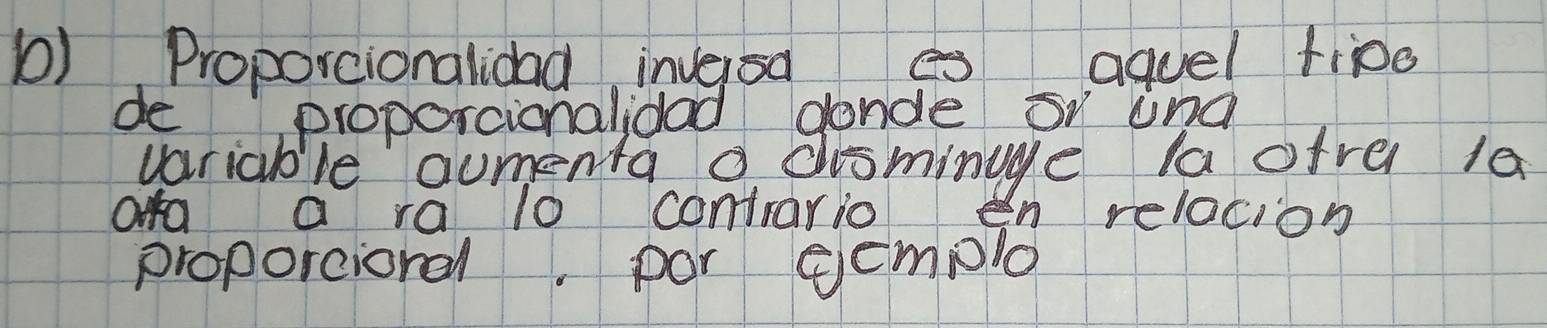 b) Proporcionalidad inversa es aquel tipo
de proporcionalidad donde si una
variable aumenta o disminuye la otra la
a ra lo contrario en relacion
proporcional . por ejemplo